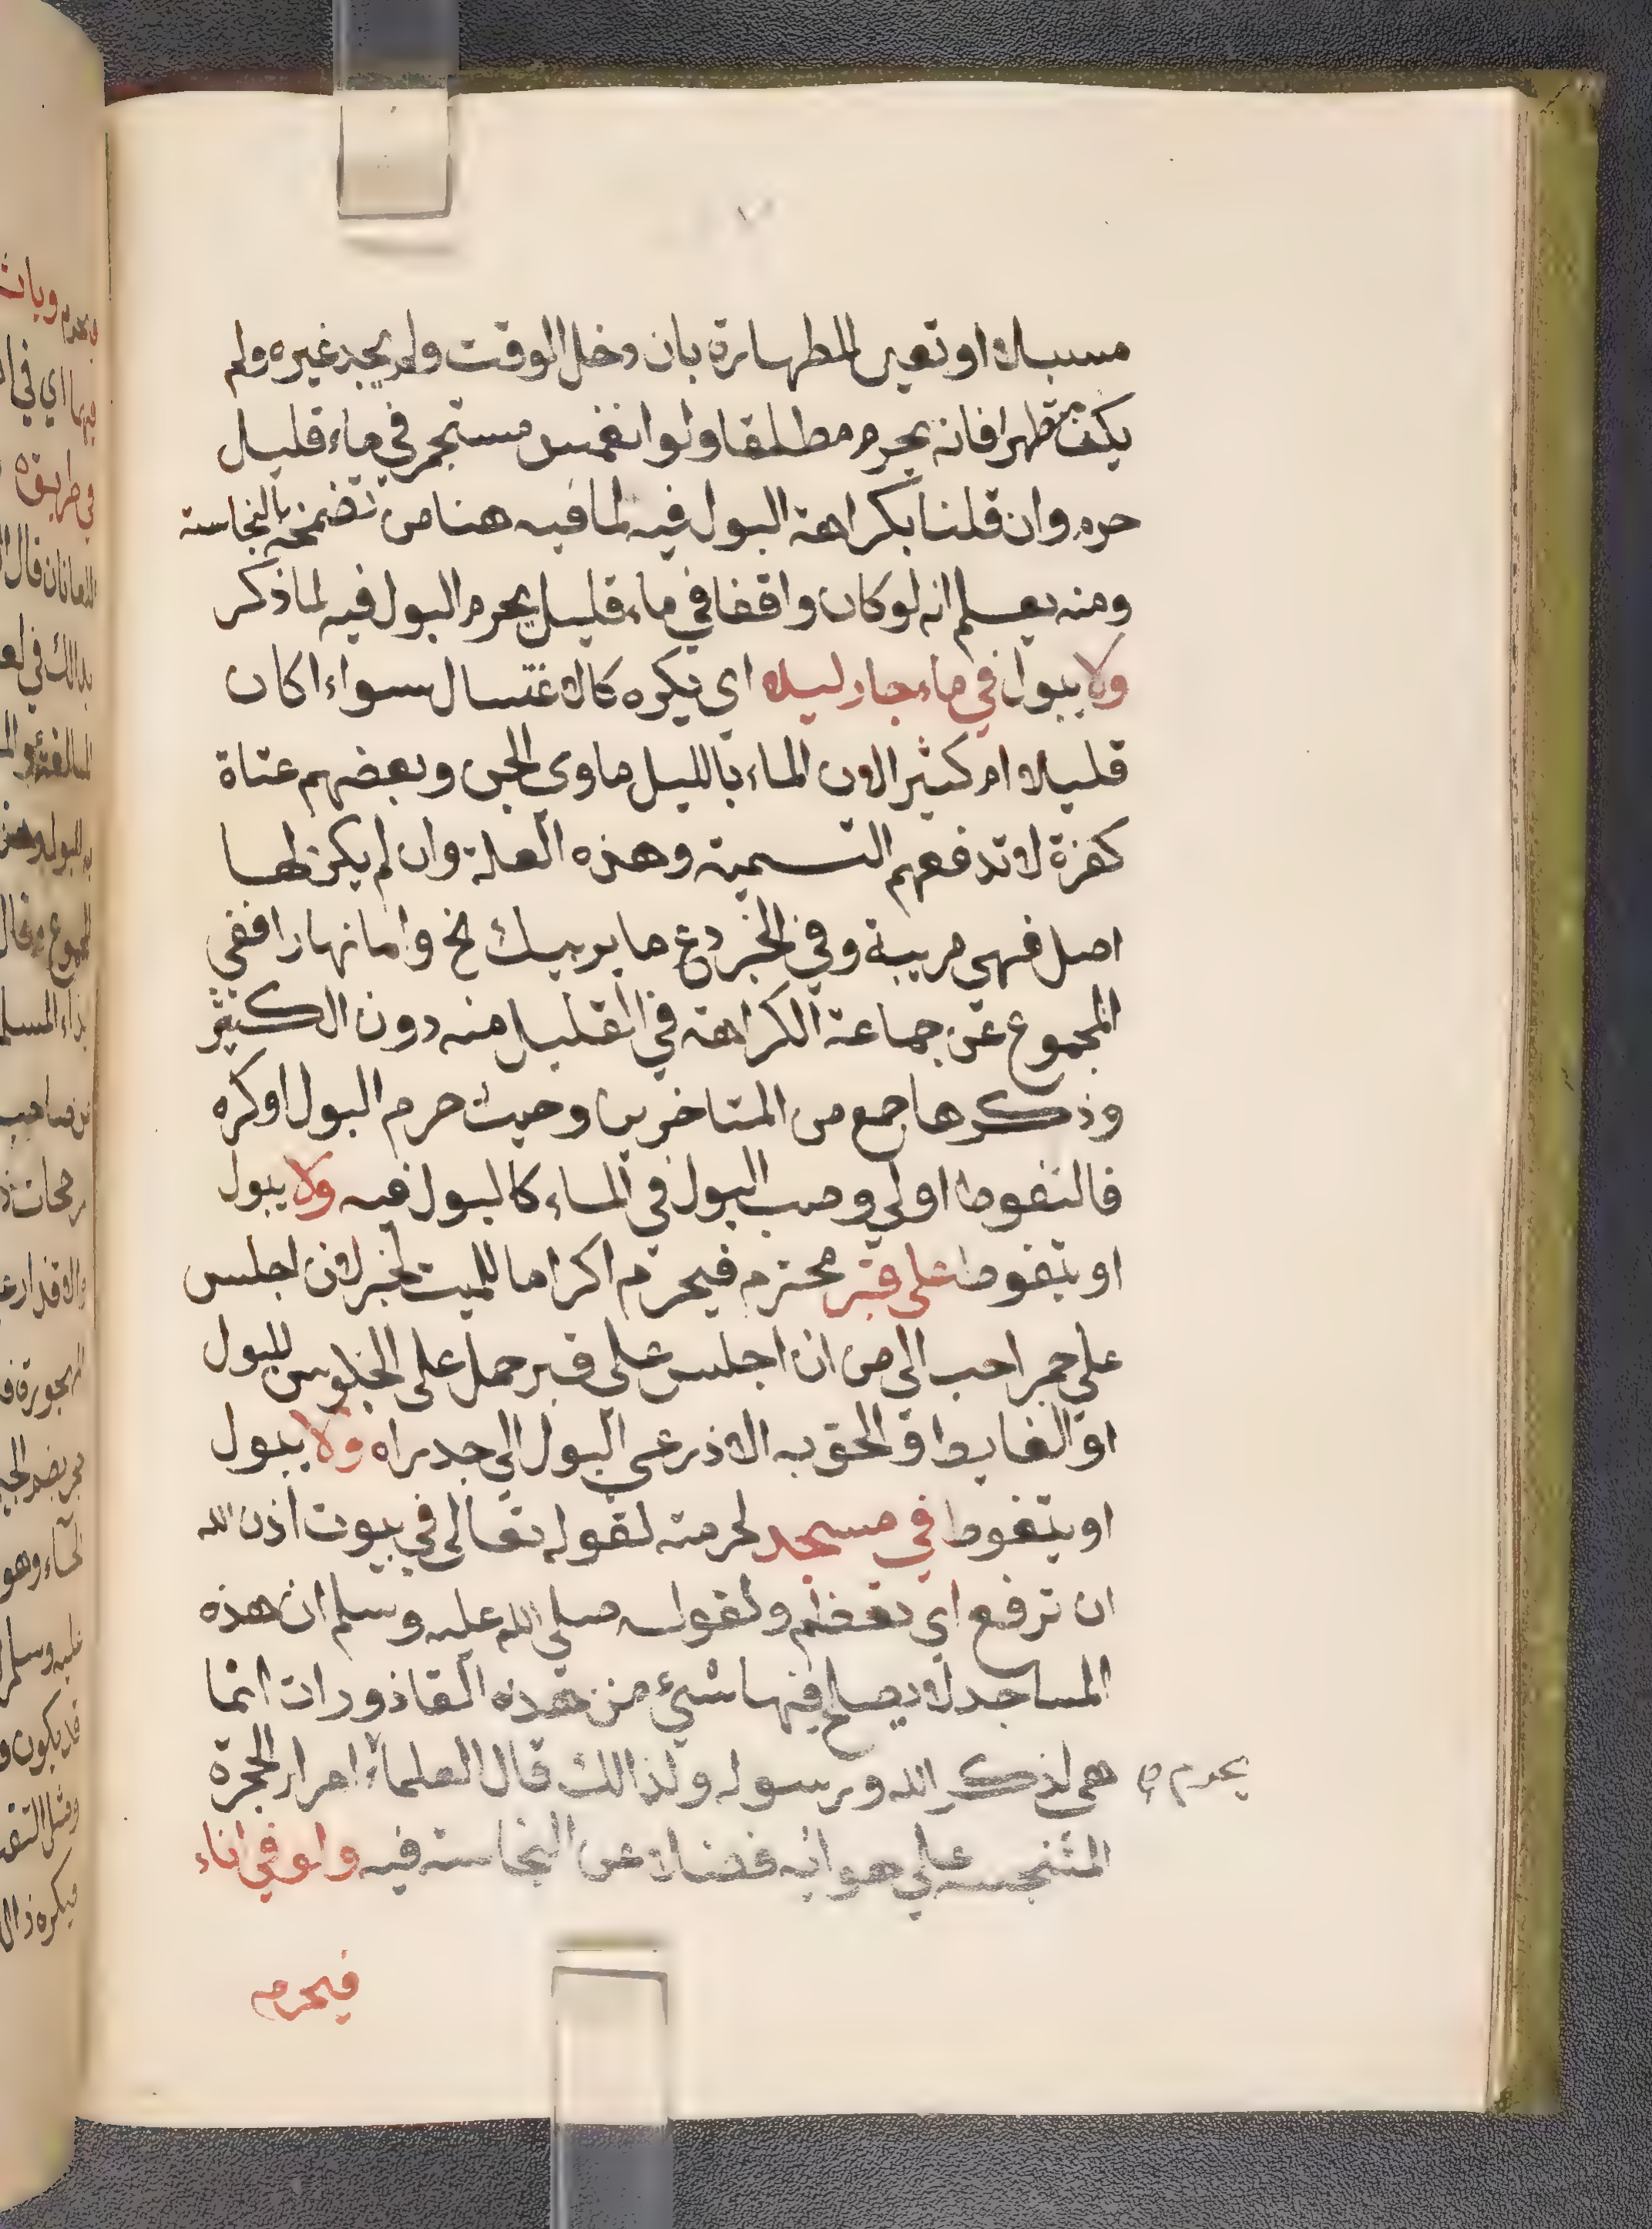 مسبلا او تعين للطهارة بان دخل الوقت ولم يجد غيره ولم
يكف تطهرا فانه يحرم مطلقا ولو انغمس مستجمر في ماء قليل
حرم وان قلنا بكراهة البول فيه لما فيه هنا من تضمخه بالنجاسة
ومنه يعلم انه لو كان واقفا في ماء قليل يحرم البول فيه لما ذكر
ولا يبول في ماء جار ليلا اي يكره كالاغتسال سواء اكان
قليلا ام كثيرا لان الماء بالليل ماوى الجن وبعضهم عتاة
كفرة لا تدفعهم التسمية وهذه العلة وان لم يكن لها
اصل فهي مريبة وفي الخبر دع ما يريبك نخ واما نهارا ففي
المجموع عن جماعة الكراهة في القليل منه دون الكثير
وذكرها جمع من المتاخرين وحيث حرم البول او كره
فالتغوط اولى وصب البول في الماء كالبول فيه ولا يبول
او يتغوط على قبر محترم فيحرم اكراما للميت لخبر لان اجلس
على جمر احب الي من ان اجلس على قبر حمل على الجلوس للبول
او الغايط والحق به الاذرعي البول الي جدراه ولا يبول
او يتغوط في مسجد لحرمته لقوله تعالى في بيوت اذن الله
ان ترفع اي تعظم ولقوله صلى الله عليه وسلم ان هذه
المساجد لا يصلح فيها شيئ من هذه القاذورات انما
هي لذكر الله ورسوله ولذالك قال العلماء امرار الحجرة
يحرم
المتنجسة على هوائه فضلا عن النجاسة فيه ولو في اناء
فيحرم